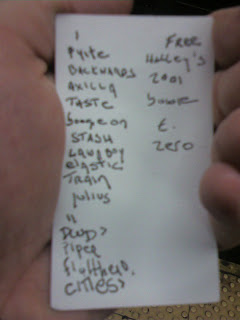 I
Pyite
BACKWARDS
AXILLA
TASTE
boogie on
STASH
LAWN BOY
elastic
TRAIN
julius
II
DWD>
Piper
fluffhead.
cities>
FREE
Halley's
2001
bowie
E.
zero